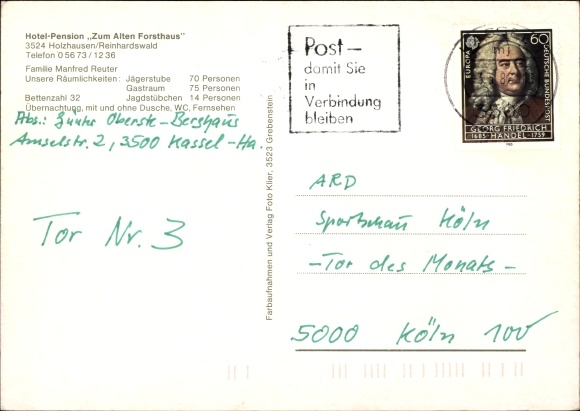 Hotel-Pension „Zum Alten Forsthaus"
3524 Holzhausen/Reinhardswald
Telefon 0 56 73 / 12 36
Familie Manfred Reuter
Unsere Räumlichkeiten: Jägerstube 70 Personen
Gastraum 75 Personen
Bettenzahl 32 Jagdstübchen 14 Personen
Übernachtung, mit und ohne Dusche, WC, Fernsehen
Abs.: Günter Oberste-Berghaus
Amselstr. 2, 3500 Kassel-Ha.
Tor Nr. 3
Farbaufnahmen und Verlag Foto Klier, 3523 Grebenstein
Post-
damit Sie
in
Verbindung
bleiben
EUROPA
60
DEUTSCHE BUNDESPOST
GEORG FRIEDRICH
1685 HÄNDEL 1759
1985
ARD
Sportschau Köln
- Tor des Monats -
5000 Köln 100